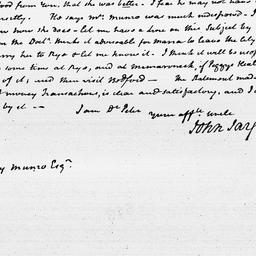 ood from You, that she was better. I fear he may not have
rectly. He says Mrs. Munro was much indisposed. I
w how she does – let me have a Line on this Subject by
n the Doctr. thinks it adviseable for marra to leave the City
arry her to Rye & let me know it. I think it will be usef
some time at Rye, and at Mamaroneck, if Peggys Heal
of it; and then visit Bedford — The Statement made
money transactions, is clear and satisfactory, and I
by it —
I am Dr Peter
Your affte uncle
John Jay
y Munro Esqr.